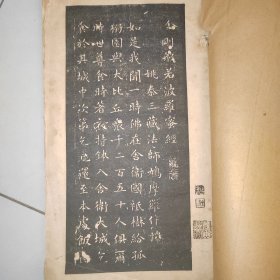 金剛般若波羅蜜經
姚秦三藏法師鳩摩羅什譯
如是我聞一時佛在舍衛國祇樹給孤
獨園與大比丘衆千二百五十人俱爾
時世尊食時著衣持鉢入舍衛大城乞
食於其城中次第乞已還至本處飯